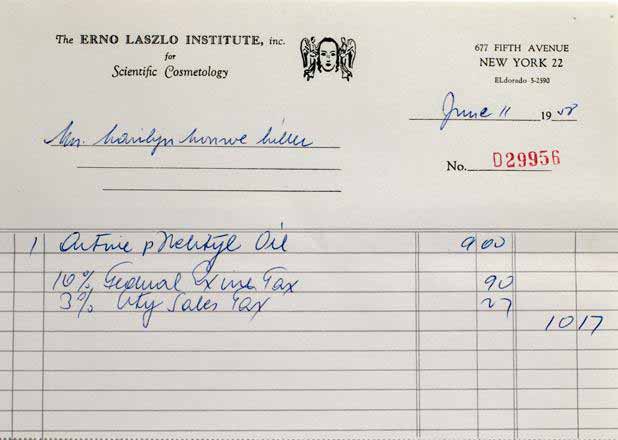 The ERNO LASZLO INSTITUTE, inc.
for
Scientific Cosmetology
677 FIFTH AVENUE
NEW YORK 22
ELdorado 5-2590
June 11 1958
Mrs. Marilyn Monroe Miller
No. D29956
1 Active pHelityl Oil 9 00
10% Federal Excise Tax 90
3% City Sales Tax 27
10 17